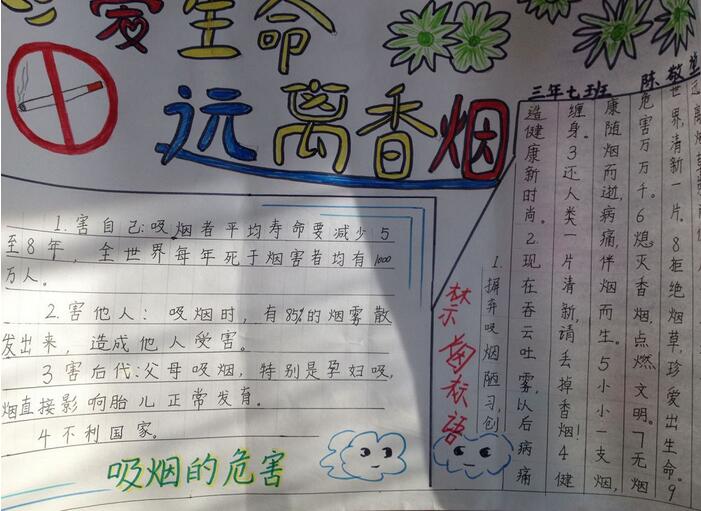 爱生命
远离香烟
三年七班 陈敬
1.害自己:吸烟者平均寿命要减少5
至8年,全世界每年死于烟害者均有1000
万人。
2.害他人: 吸烟时,有85%的烟雾散
发出来,造成他人受害。
3害后代:父母吸烟,特别是孕妇吸,
烟直接影响胎儿正常发育。
4不利国家。
吸烟的危害
禁 标語
1.摒弃吸烟陋习,创
造健康新时尚。2.现在吞云吐雾,以后病痛
缠身。3还人类一片清新,请丢掉香烟!4健
康随烟而逝,病痛伴烟而生。5小小一支烟,
危害万万千。6熄灭香烟.点燃文明。7无烟
世界,清新一片。8拒绝烟草,珍爱出生命。9